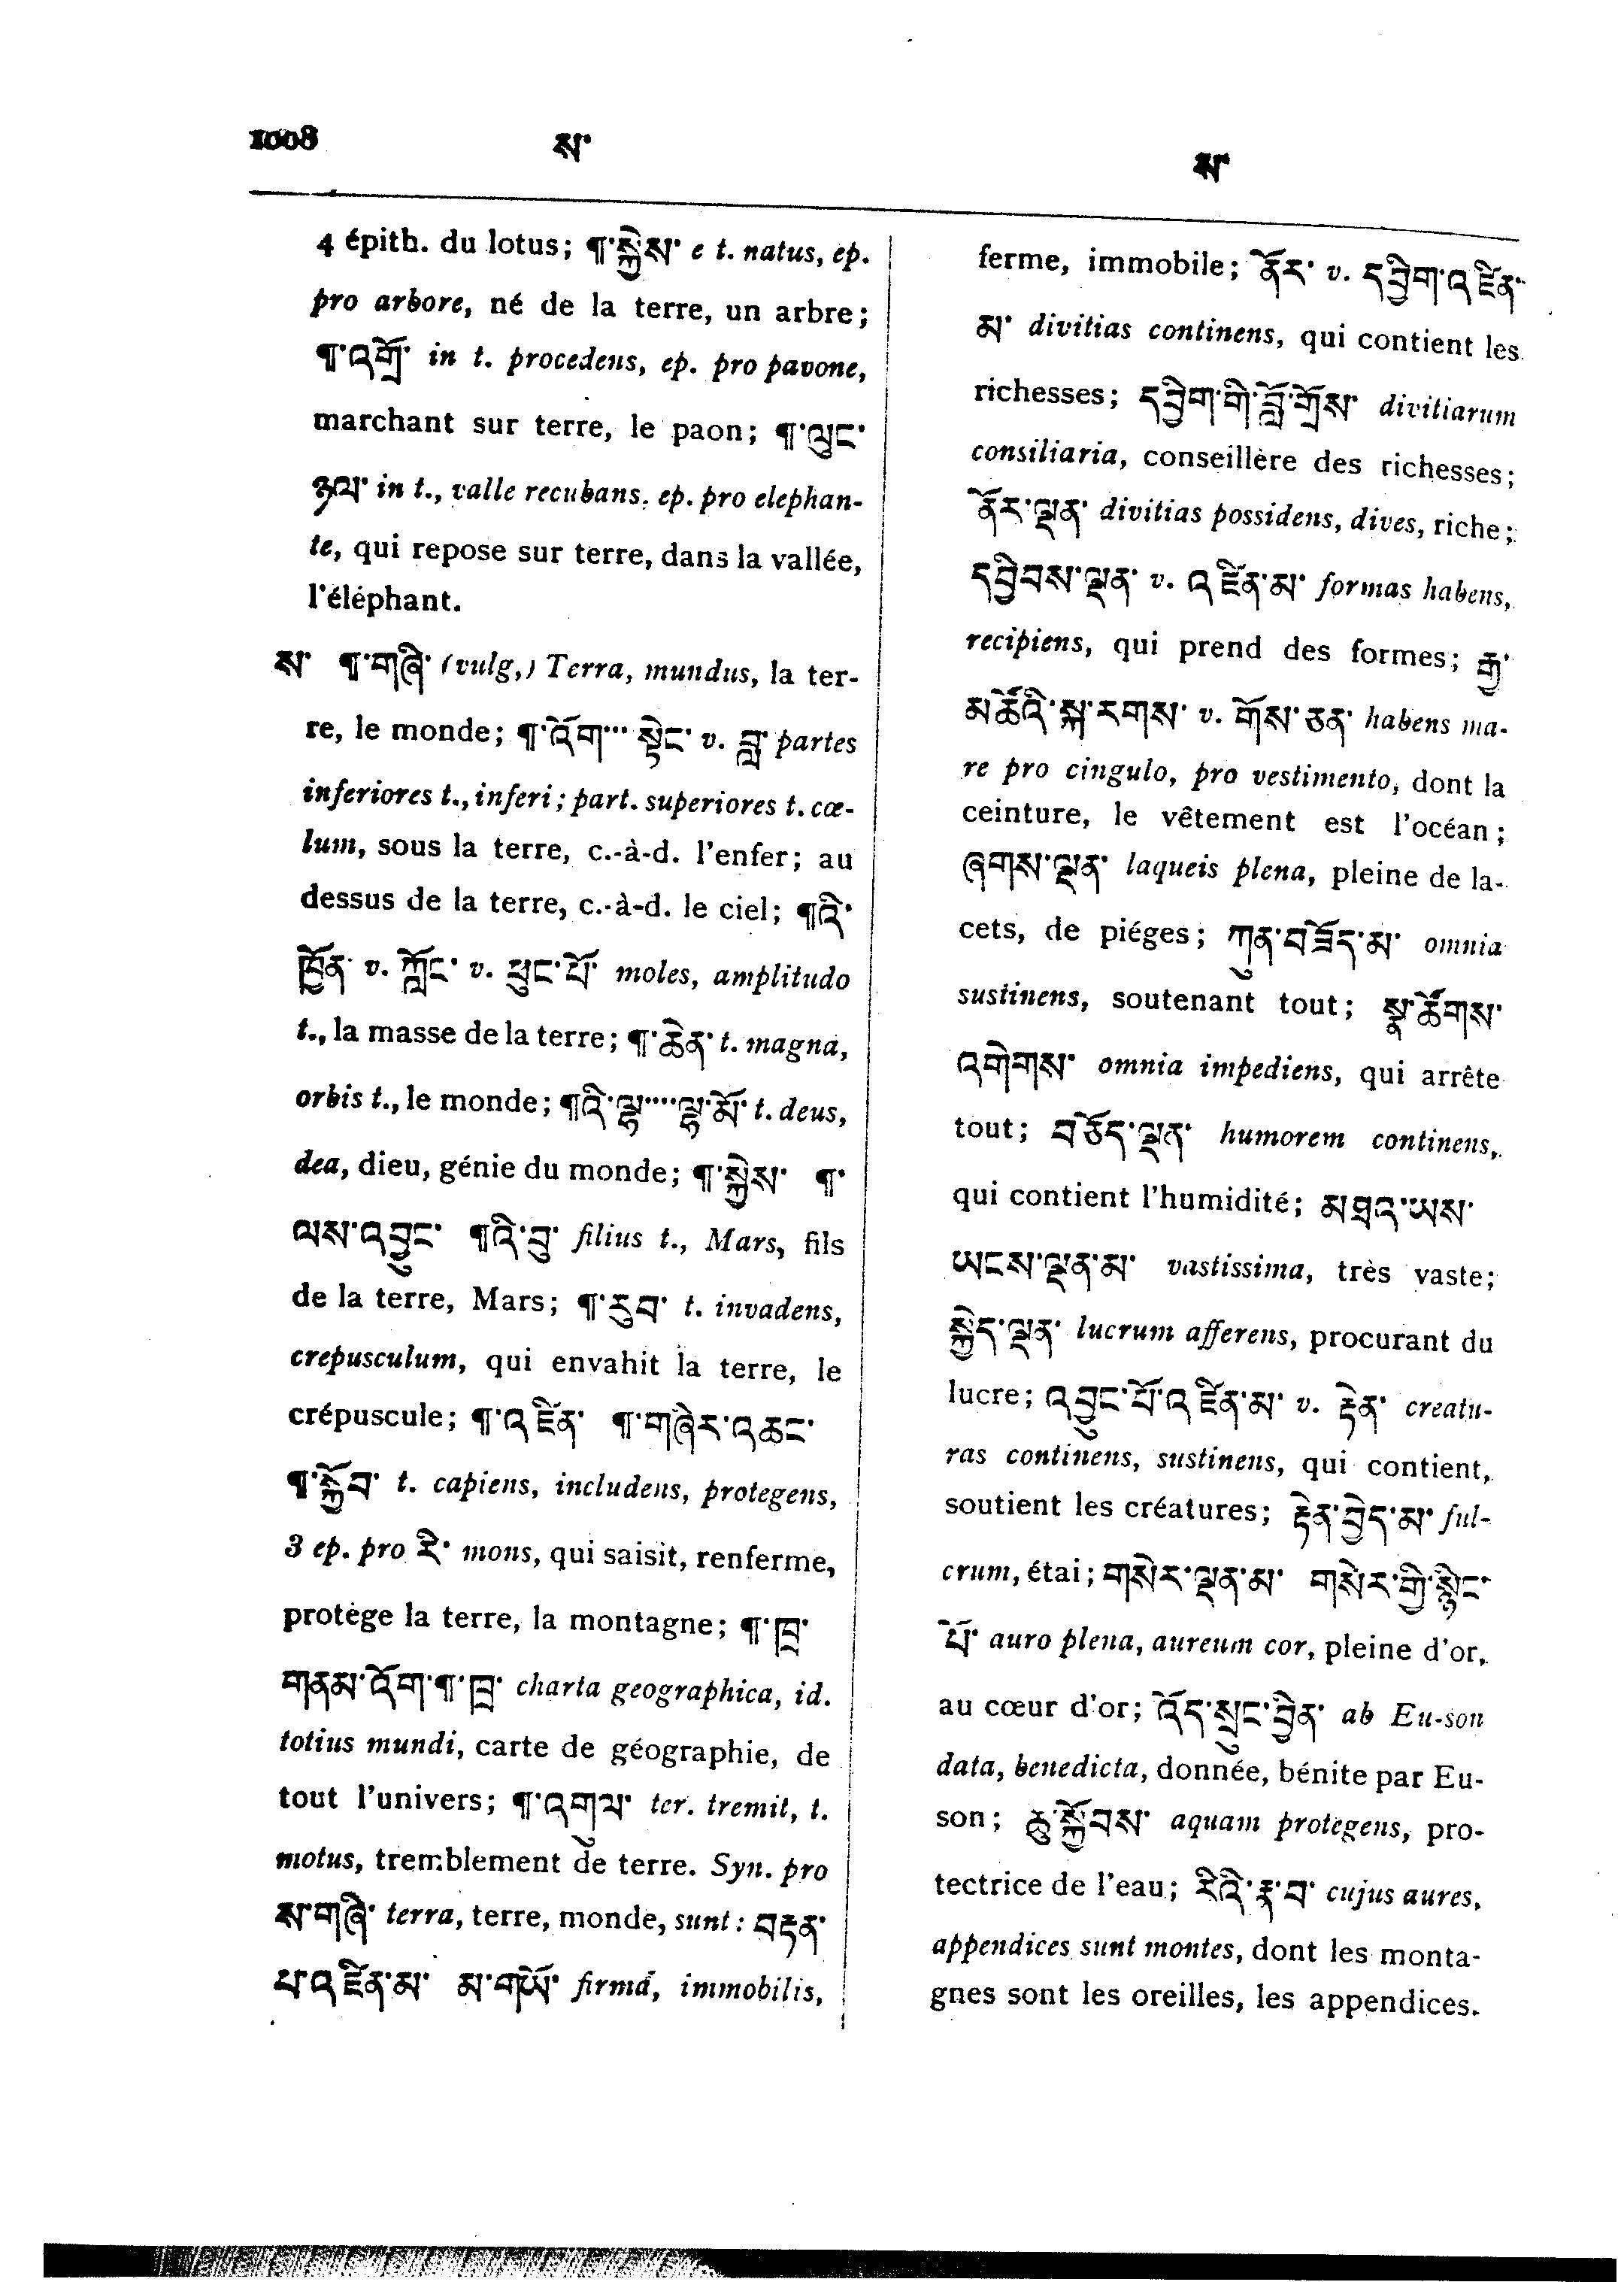 1008
ས་
ས་
4 épith. du lotus; ¶་སྐྱེས་ e t. natus, ep.
pro arbore, né de la terre, un arbre;
¶་འགྲོ་ in t. procedens, ep. pro pavone,
marchant sur terre, le paon; ¶་ལུང་
ཉལ་ in t., valle recubans, ep. pro elephan-
te, qui repose sur terre, dans la vallée,
l'éléphant.
ས་ ¶་གཞི་ (vulg,) Terra, mundus, la ter-
re, le monde; ¶་འོག་་་ སྟེང་ v. བླ་ partes
inferiores t., inferi; part. superiores t. cœ-
lum, sous la terre, c.-à-d. l'enfer; au
dessus de la terre, c.-à-d. le ciel; ¶འི་
ཁྱོན་ v. ཀློང་ v. ཕུང་པོ་ moles, amplitudo
t., la masse de la terre; ¶་ཆེན་ t. magna,
orbis t., le monde; ¶འི་ལྷ་་་་ལྷ་མོ་ t. deus,
dea, dieu, génie du monde; ¶་སྐྱེས་ ¶་
ལས་འབྱུང་ ¶འི་བུ་ filius t., Mars, fils
de la terre, Mars; ¶་རུབ་ t. invadens,
crepusculum, qui envahit la terre, le
crépuscule; ¶་འཛིན་ ¶་གཞེར་འཆང་
¶་སྐྱོབ་ t. capiens, includens, protegens,
3 ep. pro རི་ mons, qui saisit, renferme,
protège la terre, la montagne; ¶་ཁྲ་
གནམ་འོག་¶་ཁྲ་ charta geographica, id.
totius mundi, carte de géographie, de
tout l'univers; ¶་འགུལ་ ter. tremit, t.
motus, tremblement de terre. Syn. pro
ས་གཞི་ terra, terre, monde, sunt: བརྟན་
པ་འཛིན་མ་ མ་གཡོ་ firma, immobilis,
ferme, immobile; ནོར་ v. དབྱིག་འཛིན་
མ་ divitias continens, qui contient les
richesses; དབྱིག་གི་བློ་གྲོས་ divitiarum
consiliaria, conseillère des richesses;
ནོར་ལྡན་ divitias possidens, dives, riche;
དབྱིབས་ལྡན་ v. འཛིན་མ་ formas habens,
recipiens, qui prend des formes; རྒྱ་
མཚོའི་སྐ་རགས་ v. གོས་ཅན་ habens ma-
re pro cingulo, pro vestimento, dont la
ceinture, le vêtement est l'océan;
ཞགས་ལྡན་ laqueis plena, pleine de la-
cets, de piéges; ཀུན་བཟོད་མ་ omnia
sustinens, soutenant tout; སྣ་ཚོགས་
འགེགས་ omnia impediens, qui arrête
tout; བཅོད་ལྡན་ humorem continens,
qui contient l'humidité; མཐའ་ཡས་
ཡངས་ལྡན་མ་ vastissima, très vaste;
སྐྱེད་ལྡན་ lucrum afferens, procurant du
lucre; འབྱུང་པོ་འཛིན་མ་ v. རྟེན་ creatu-
ras continens, sustinens, qui contient,
soutient les créatures; རྟེན་བྱེད་མ་ ful-
crum, étai; གསེར་ལྡན་མ་ གསེར་གྱི་སྙིང་
པོ་ auro plena, aureum cor, pleine d'or,
au cœur d'or; འོད་སྲུང་བྱིན་ ab Eu-son
data, benedicta, donnée, bénite par Eu-
son; ཆུ་སྐྱོབས་ aquam protegens, pro-
tectrice de l'eau; རིའི་རྣ་བ་ cujus aures,
appendices sunt montes, dont les monta-
gnes sont les oreilles, les appendices.